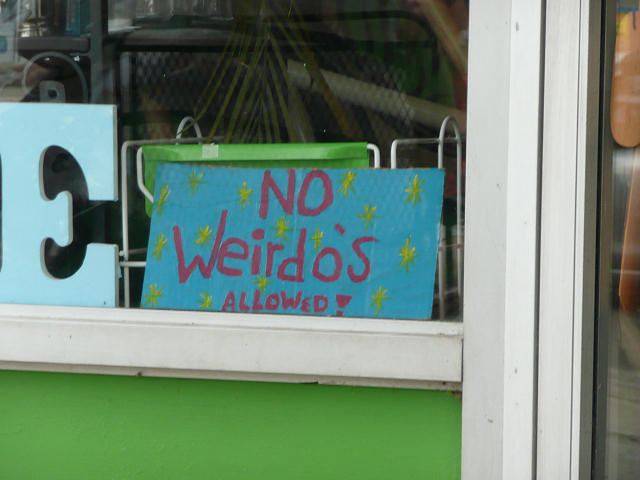 E
NO
Weirdo's
ALLOWED!